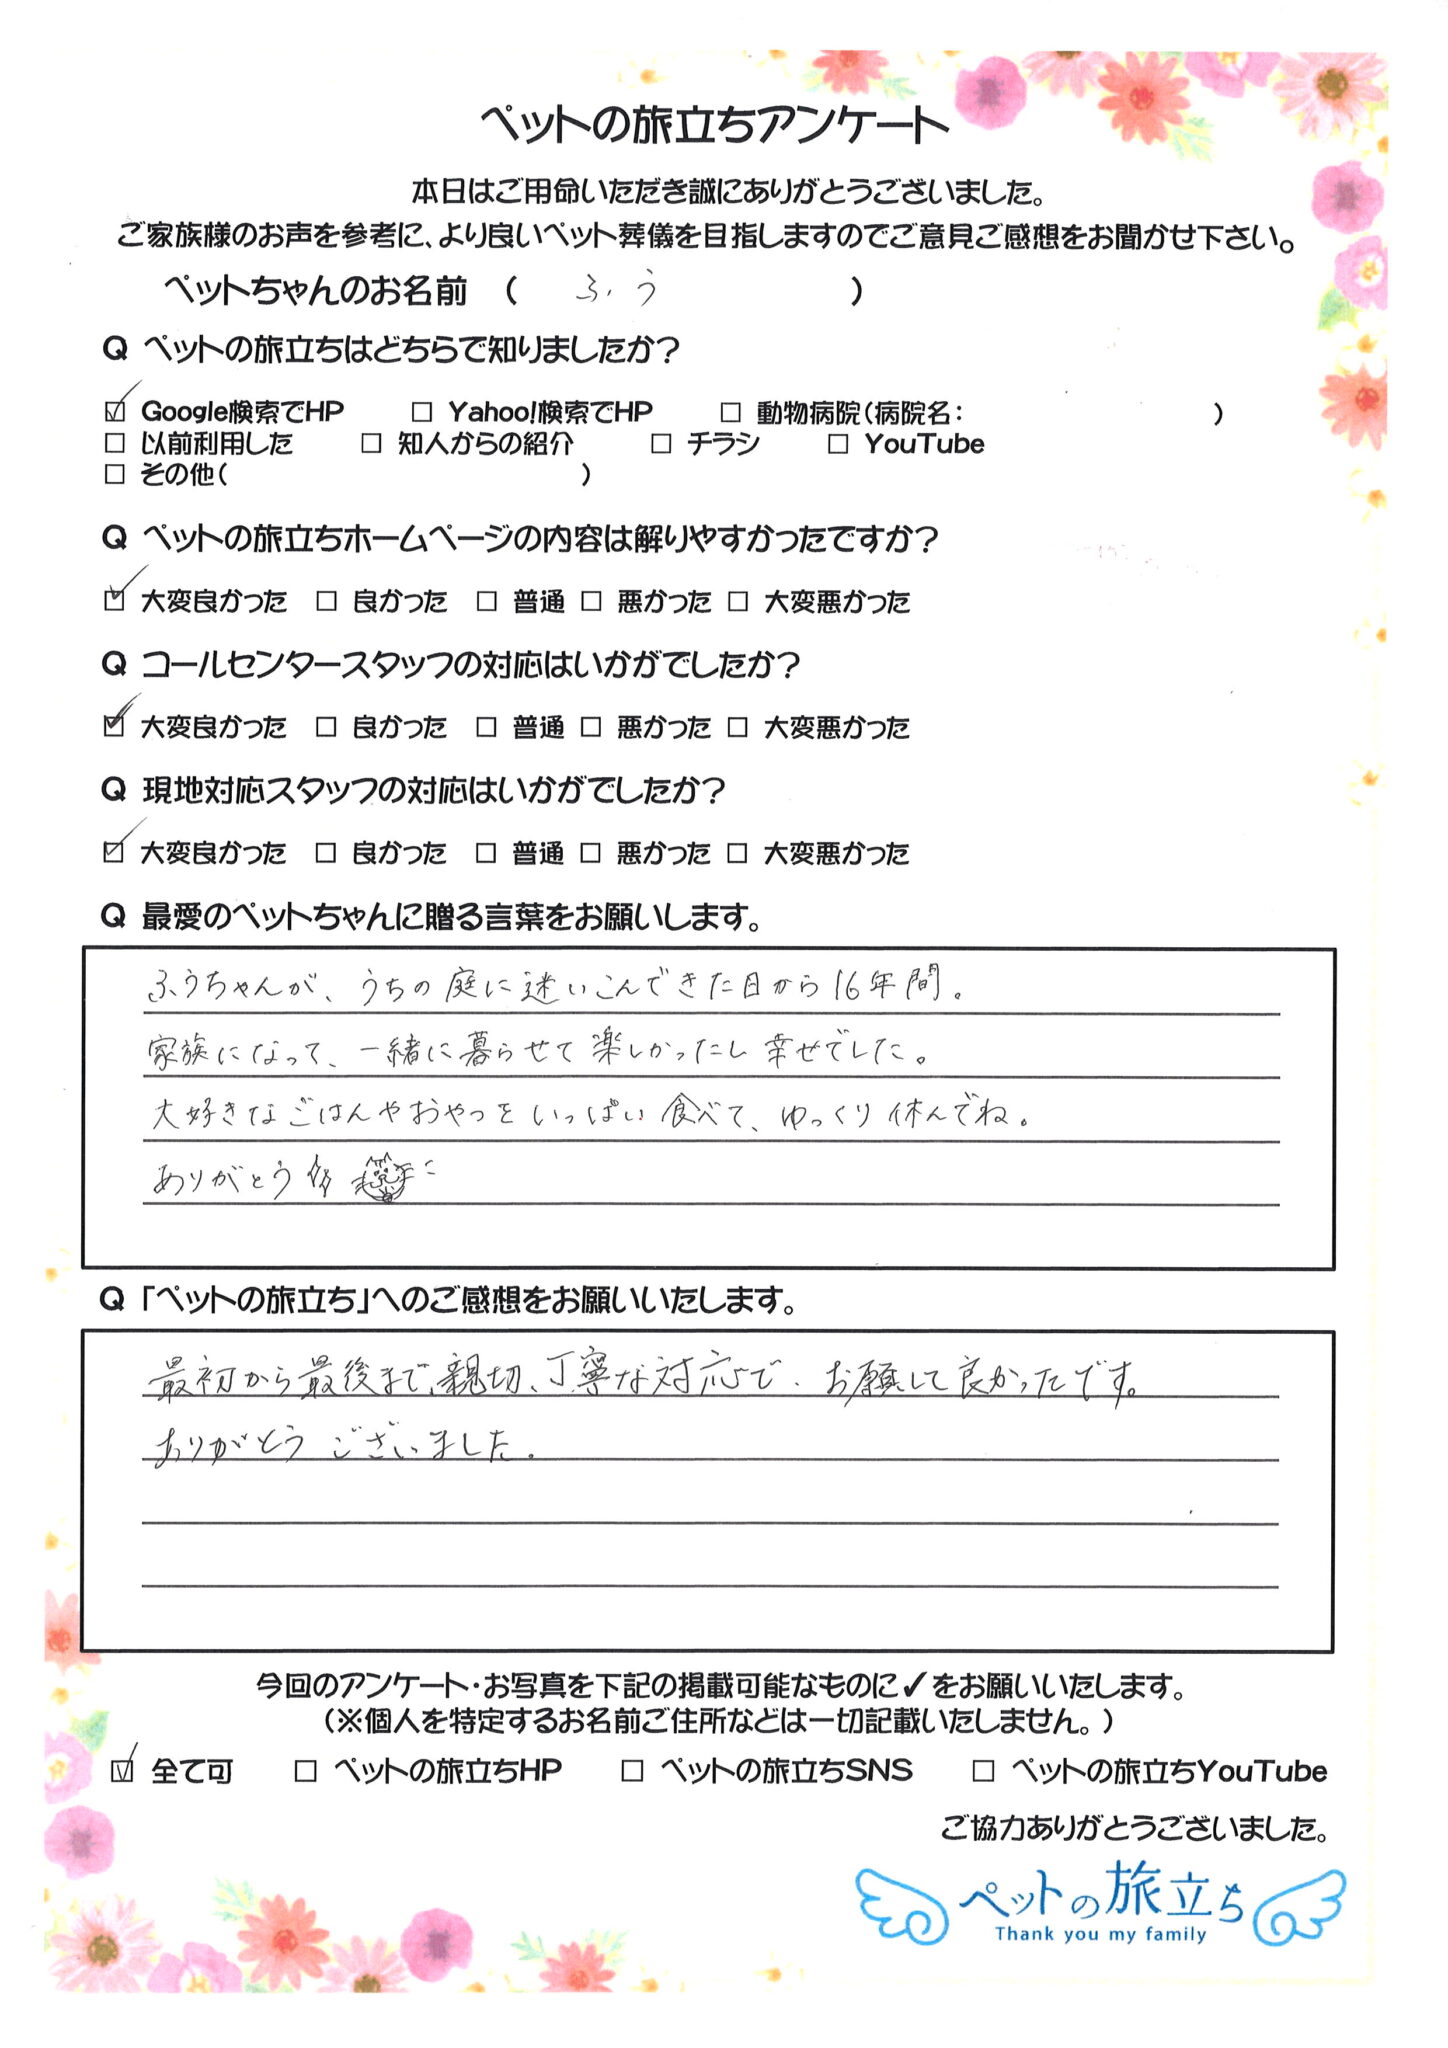 ペットの旅立ちアンケート
本日はご用命いただき誠にありがとうございました。
ご家族様のお声を参考に、より良いペット葬儀を目指しますのでご意見ご感想をお聞かせ下さい。
ペットちゃんのお名前 ( ふう )
Q ペットの旅立ちはどちらで知りましたか?
☑ Google検索でHP □ Yahoo!検索でHP □ 動物病院(病院名: )
□ 以前利用した □ 知人からの紹介 □ チラシ □ YouTube
□ その他( )
Q ペットの旅立ちホームページの内容は解りやすかったですか?
☑ 大変良かった □ 良かった □ 普通 □ 悪かった □ 大変悪かった
Q コールセンタースタッフの対応はいかがでしたか?
☑ 大変良かった □ 良かった □ 普通 □ 悪かった □ 大変悪かった
Q 現地対応スタッフの対応はいかがでしたか?
☑ 大変良かった □ 良かった □ 普通 □ 悪かった □ 大変悪かった
Q 最愛のペットちゃんに贈る言葉をお願いします。
ふうちゃんが、うちの庭に迷いこんできた日から16年間。
家族になって、一緒に暮らせて楽しかったし幸せでした。
大好きなごはんやおやつをいっぱい食べて、ゆっくり休んでね。
ありがとう
Q 「ペットの旅立ち」へのご感想をお願いいたします。
最初から最後まで、親切、丁寧な対応で、お願して良かったです。
ありがとうございました。
今回のアンケート・お写真を下記の掲載可能なものに✓をお願いいたします。
(※個人を特定するお名前ご住所などは一切記載いたしません。)
☑ 全て可 □ ペットの旅立ちHP □ ペットの旅立ちSNS □ ペットの旅立ちYouTube
ご協力ありがとうございました。
ペットの旅立ち
Thank you my family